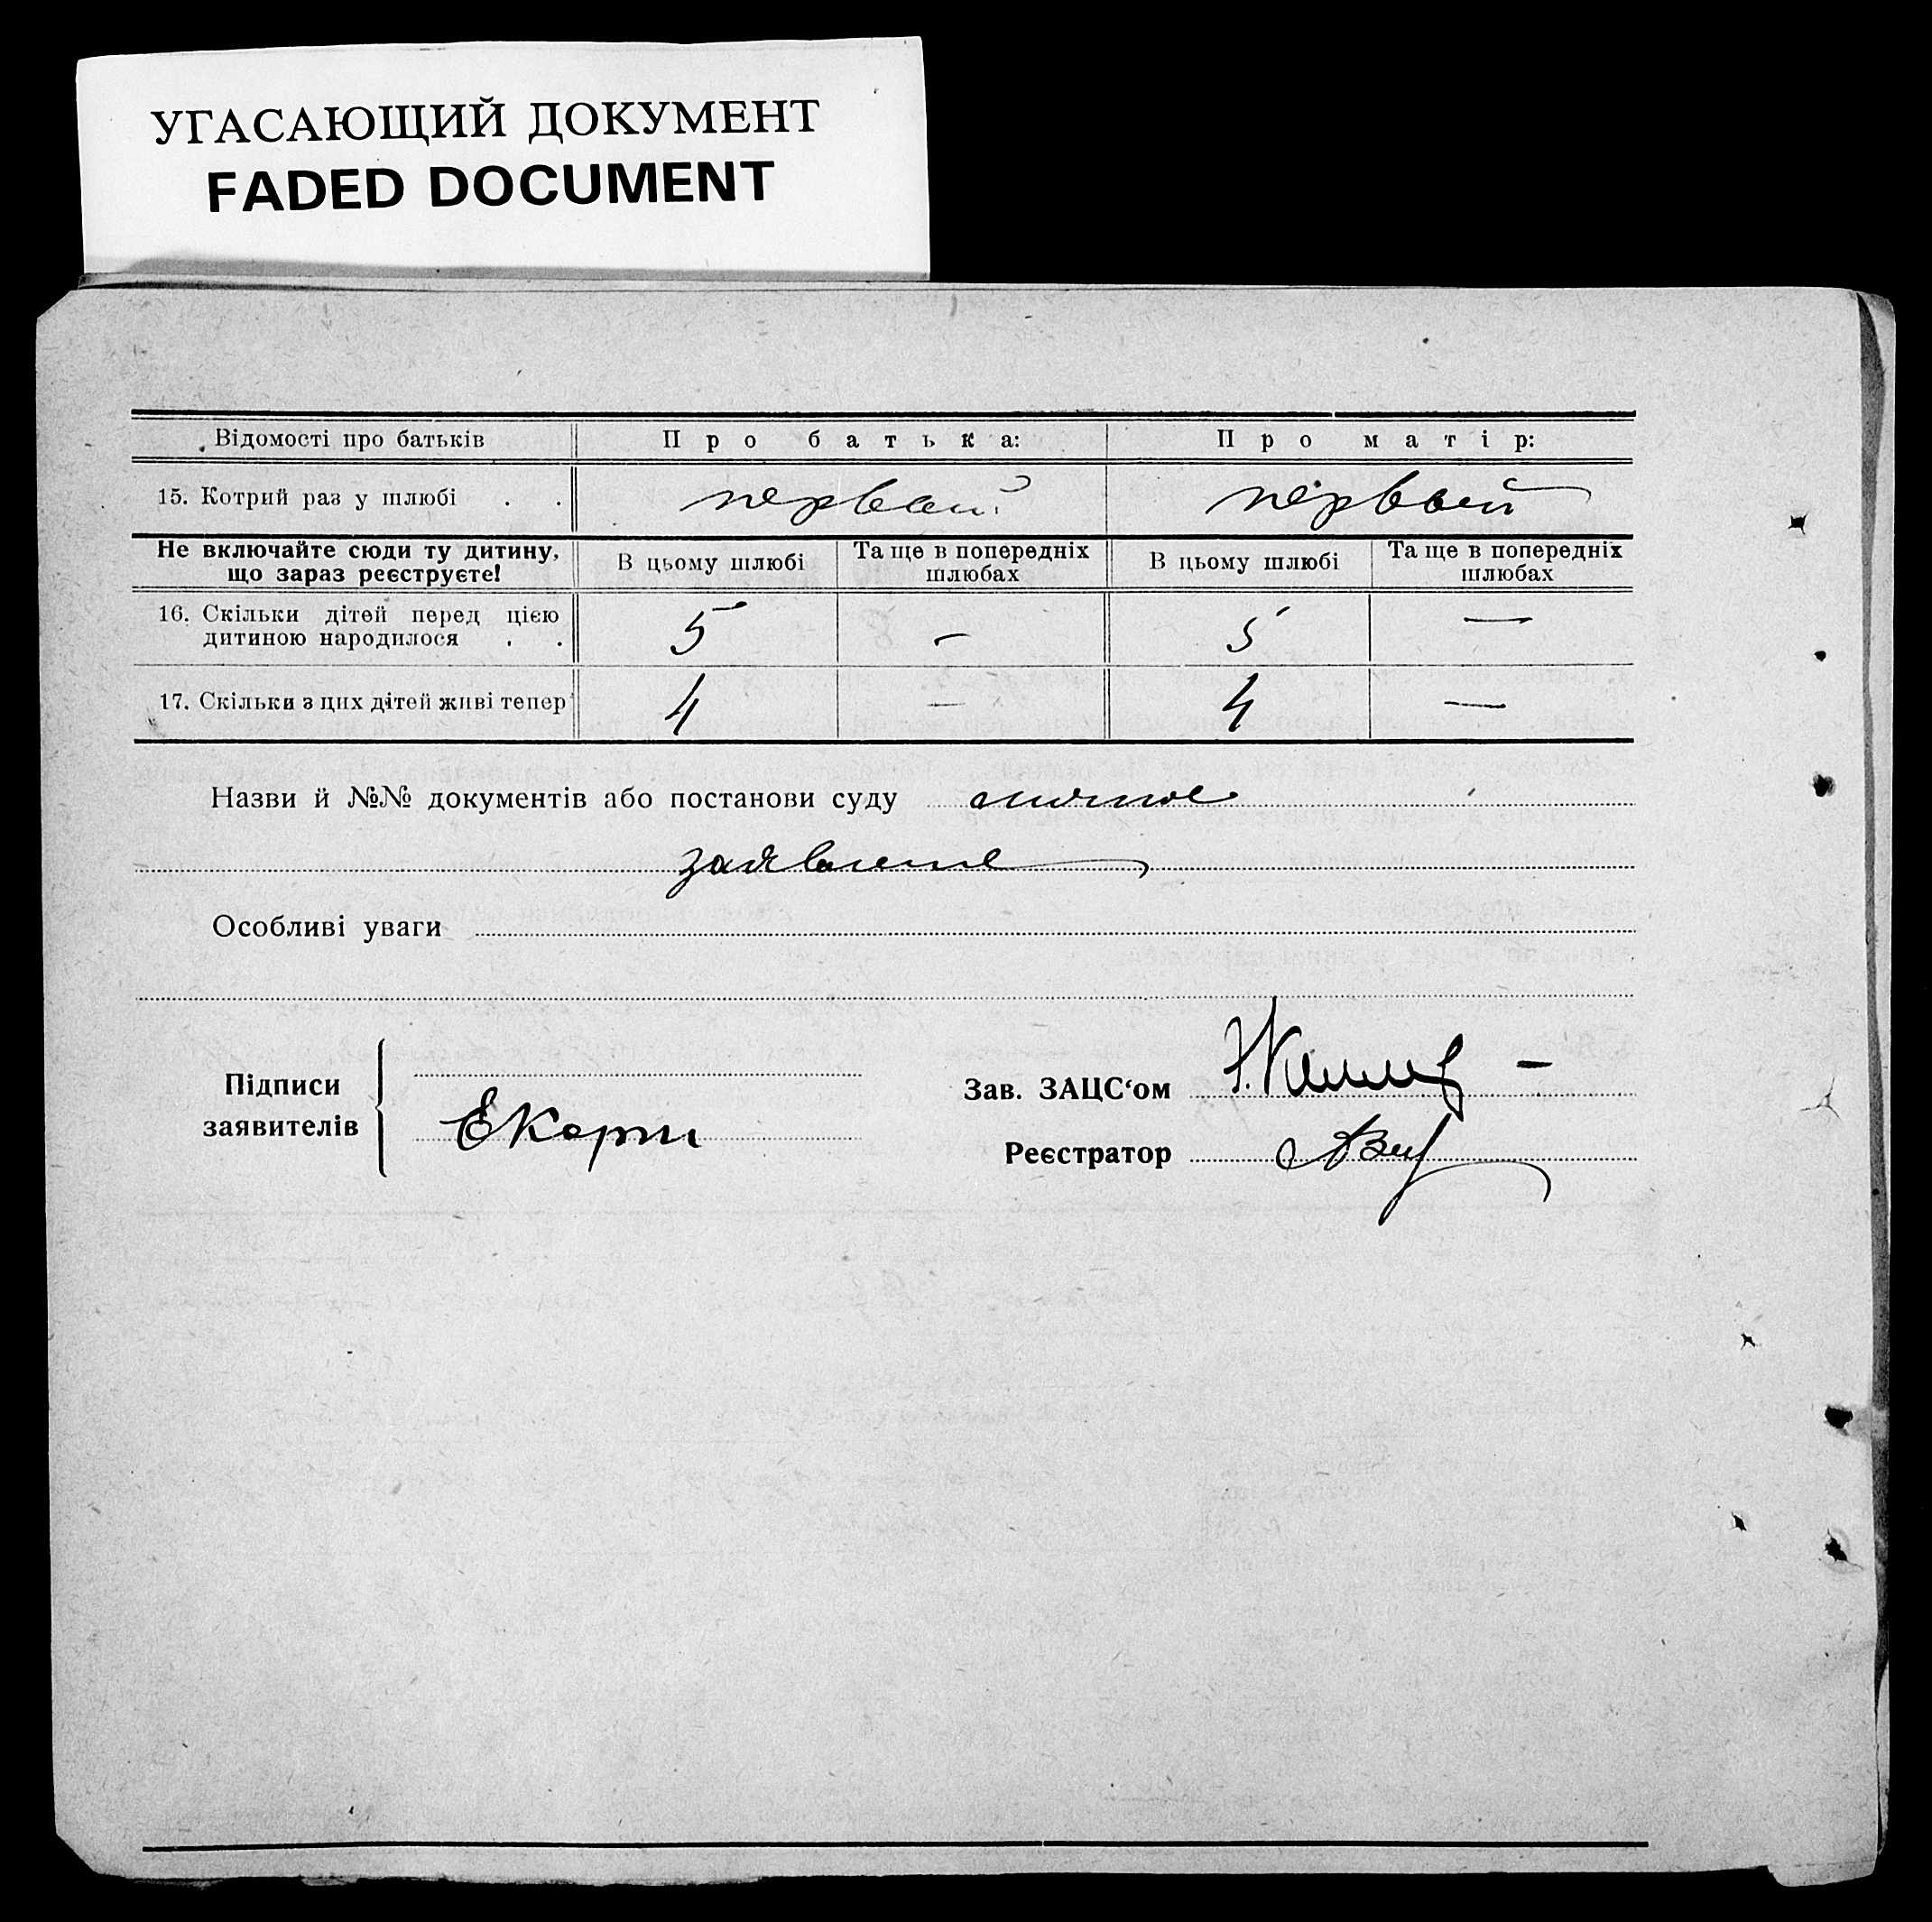 УГАСАЮЩИЙ ДОКУМЕНТ
FADED DOCUMENT
Відомості про батьків Про батька: Про матір:
15. Котрий раз у шлюбі . . первый первый
Не включайте сюди ту дитину, що зараз реєструєте! В цьому шлюбі Та ще в попередніх шлюбах В цьому шлюбі Та ще в попередніх шлюбах
16. Скільки дітей перед цією дитиною народилося . . 5 – 5 —
17. Скільки з цих дітей живі тепер 4 — 4 —
Назви й №№ документів або постанови суду личное
заявление
Особливі уваги
Підписи заявителів
Зав. ЗАЦС‘ом
Реєстратор